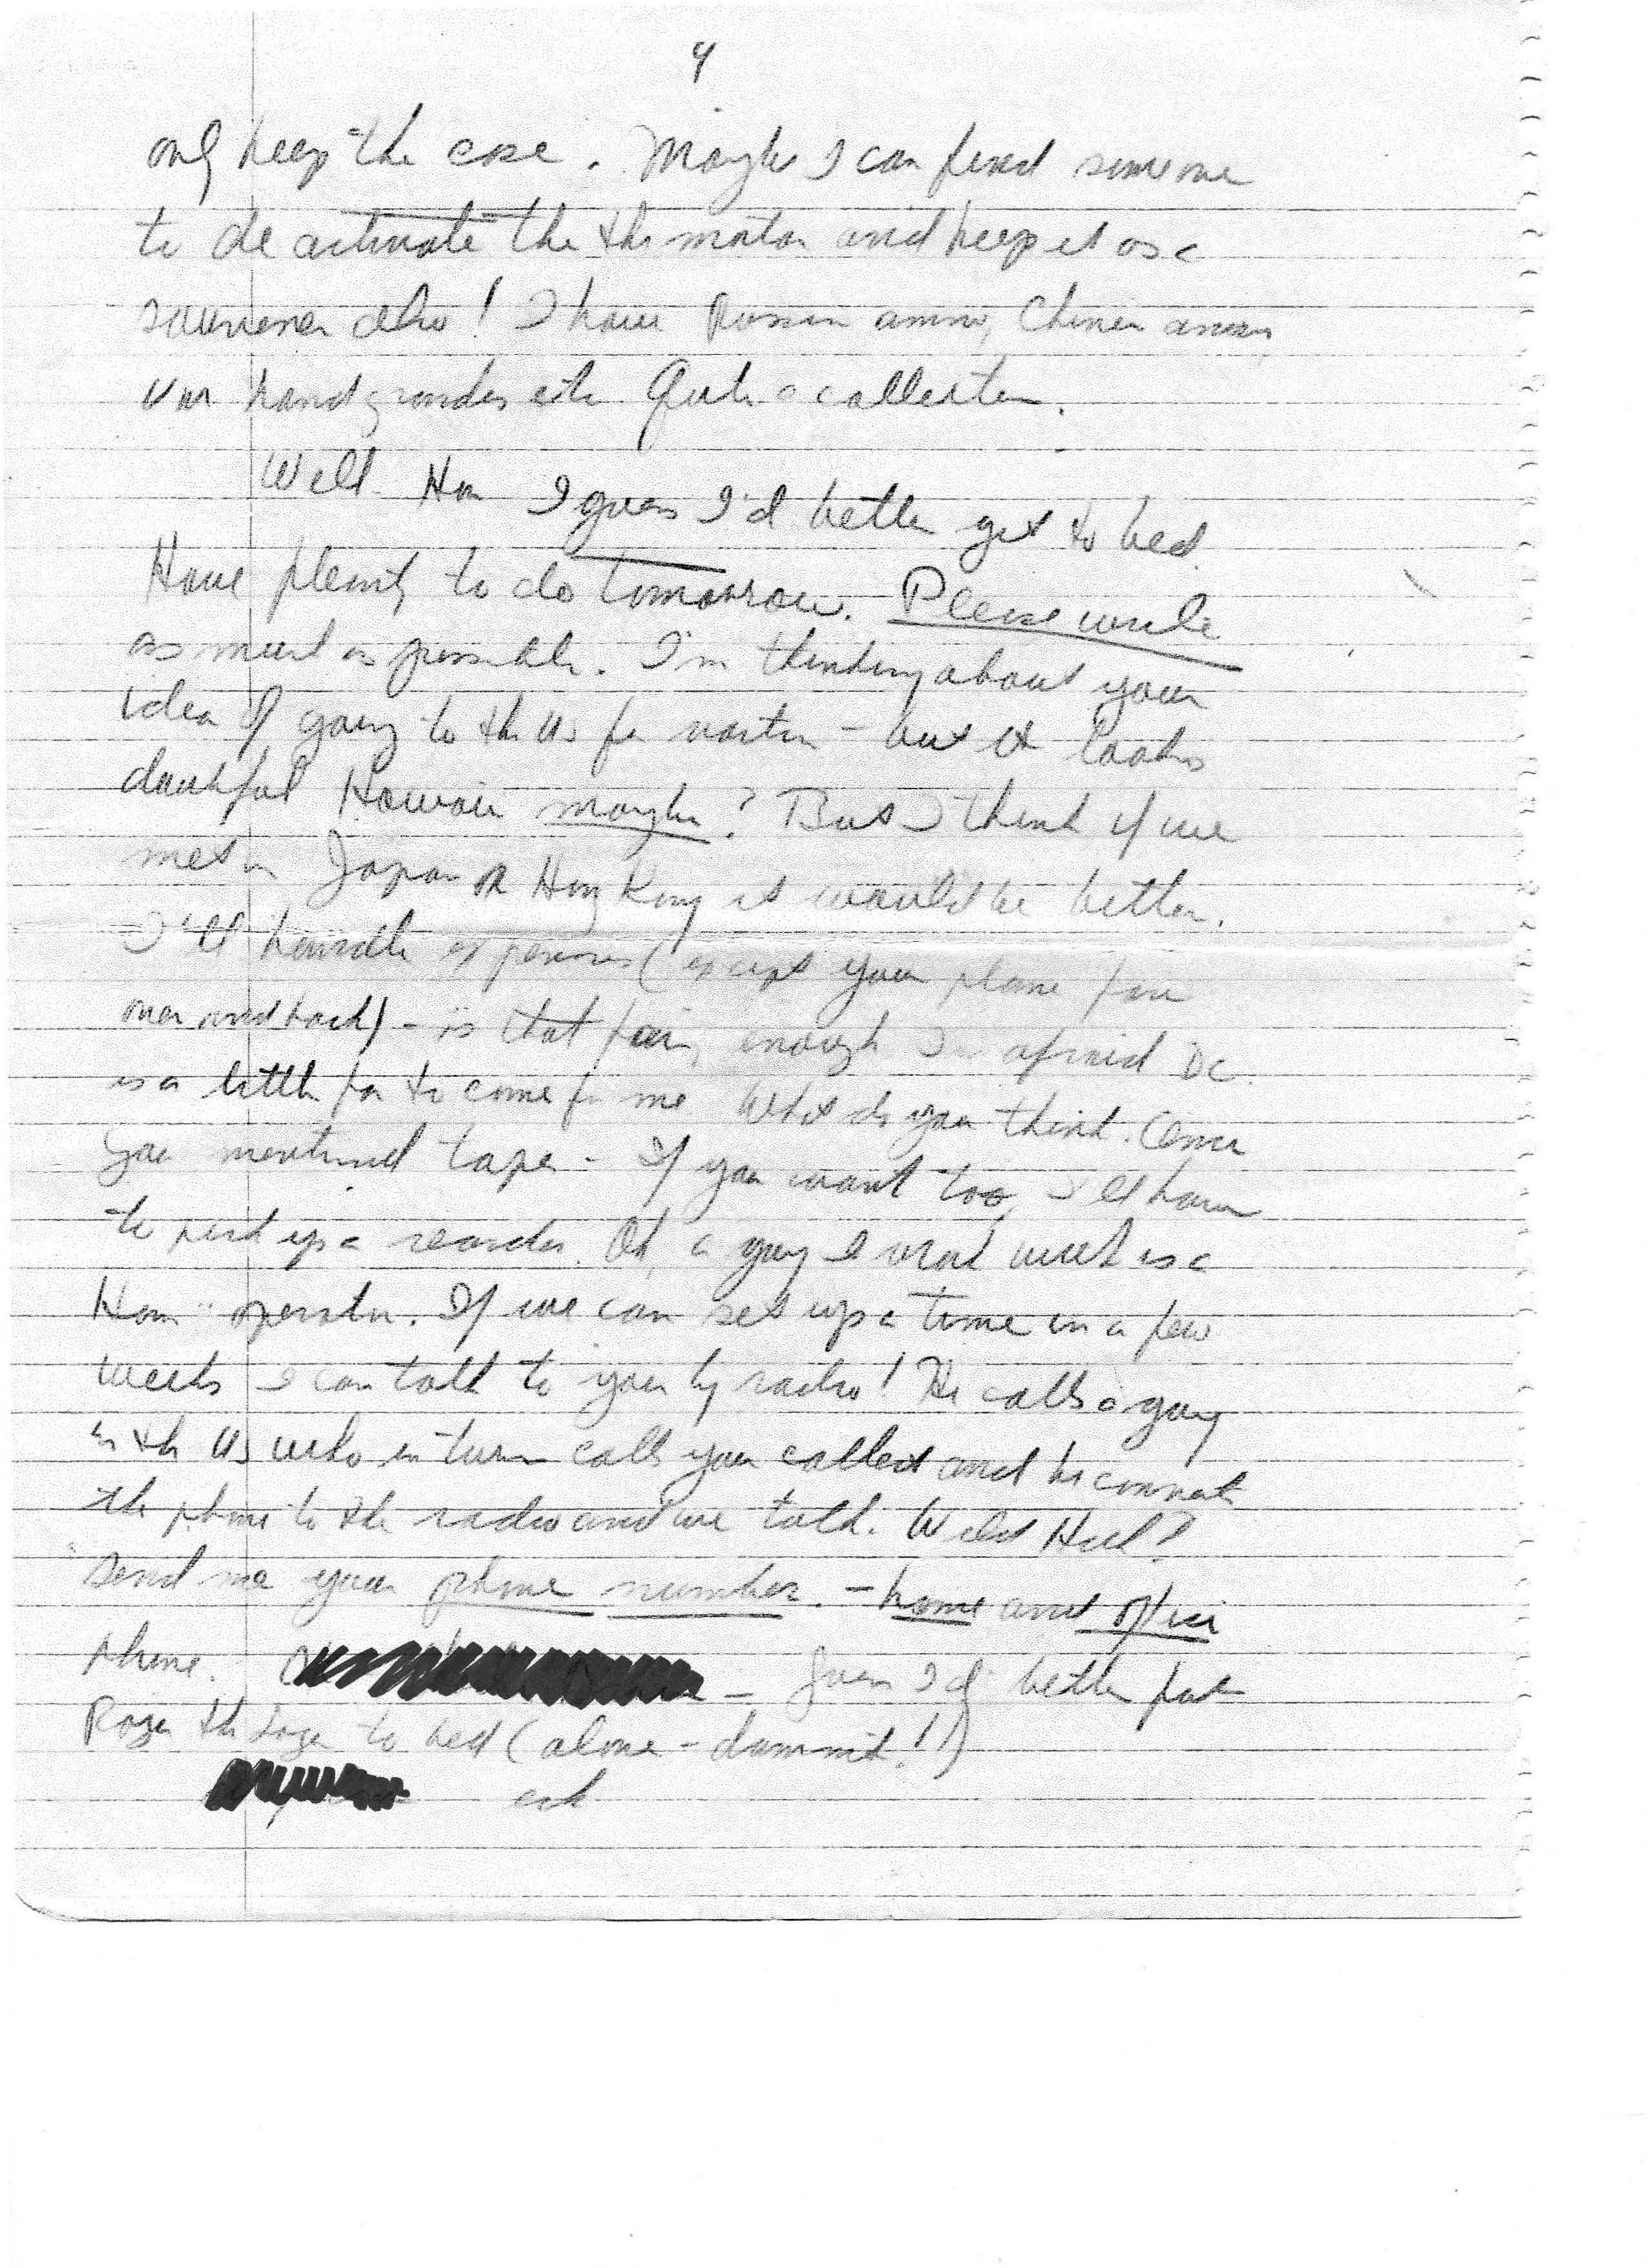 4
only keep the case. Maybe I can find someone
to de activate the the mortar and keep it as a
souvenir also! I have Russian ammo, Chinese ammo,
hand grenades etc. Quite a collection.
Well Hon I guess I'd better get to bed.
Have plenty to do tomorrow. Please write
as much as possible. I'm thinking about your
idea of going to the US for - but it looks
doubtful Hawaii maybe? But I think if we
met in Japan or Hong Kong it would be better.
I'll handle expenses (except your plane fare
over and back) - is that fair enough I'm afraid DC.
is a little far to come for me. What do you think.
You mentioned tape - If you want too, I'll have
to pick up a recorder. Oh, a guy I work with is a
Ham operator. If we can set up a time in a few
weeks I can talk to you by radio! He calls a guy
in the US who in turn calls you collect and he connects
the phone to the radio and we talk. Wild Huh?
Send me your phone number. - home and office
phone. - Guess I'd better put
Roger the to bed (alone - dammit!!)